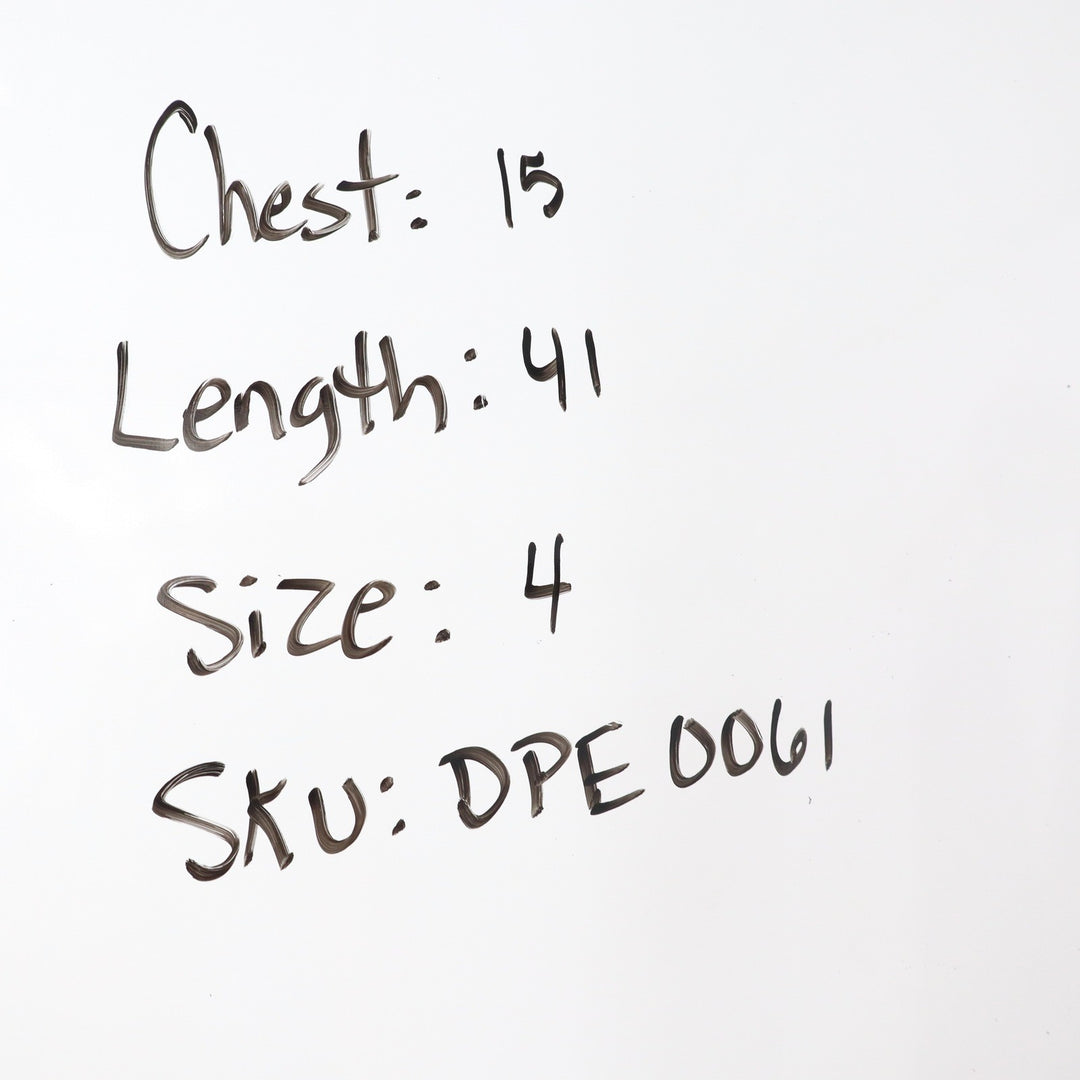 Chest: 15
Length: 41
Size: 4
SKU: DPE 0061